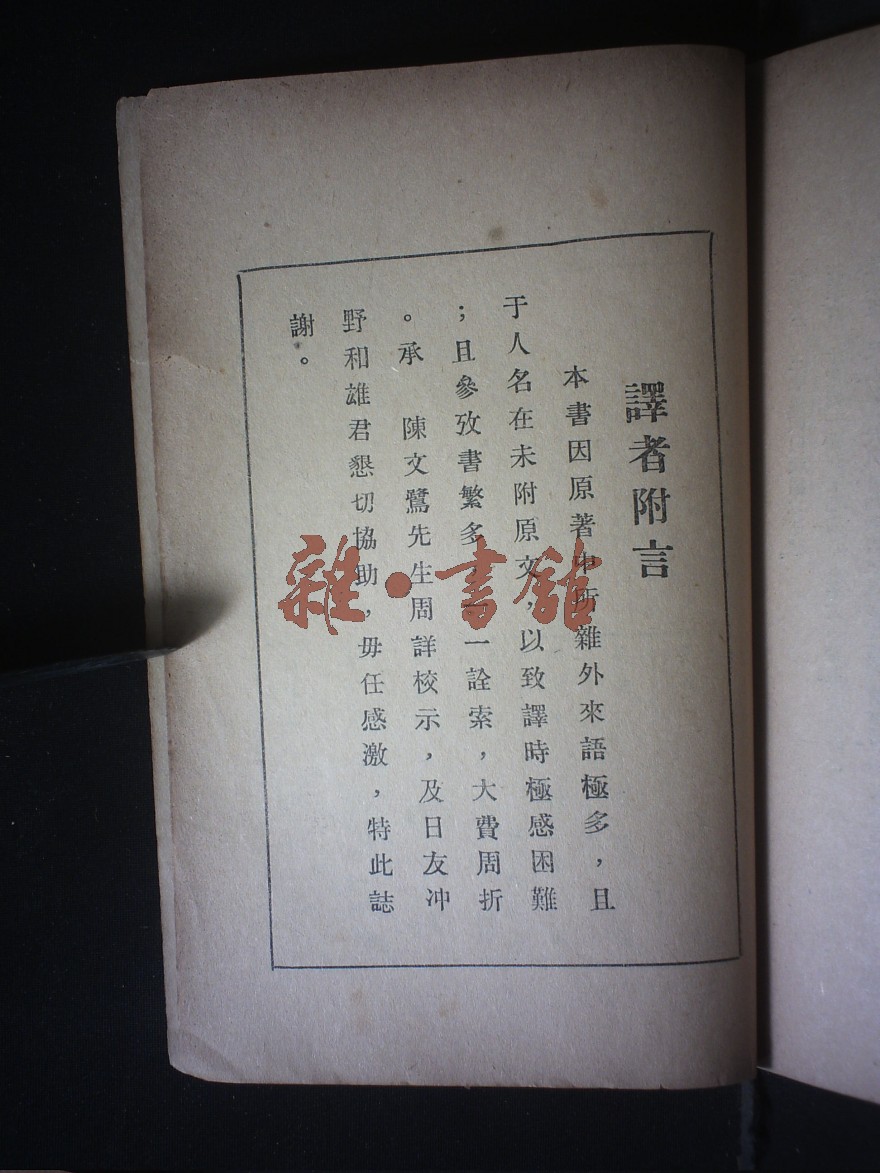 譯者附言
本書因原著中所雜外來語極多，且
于人名在未附原文，以致譯時極感困難
；且參攷書繁多，一一詮索，大費周折
。承　陳文鷺先生周詳校示，及日友冲
野和雄君懇切協助，毋任感激，特此誌
謝。
雜·書館